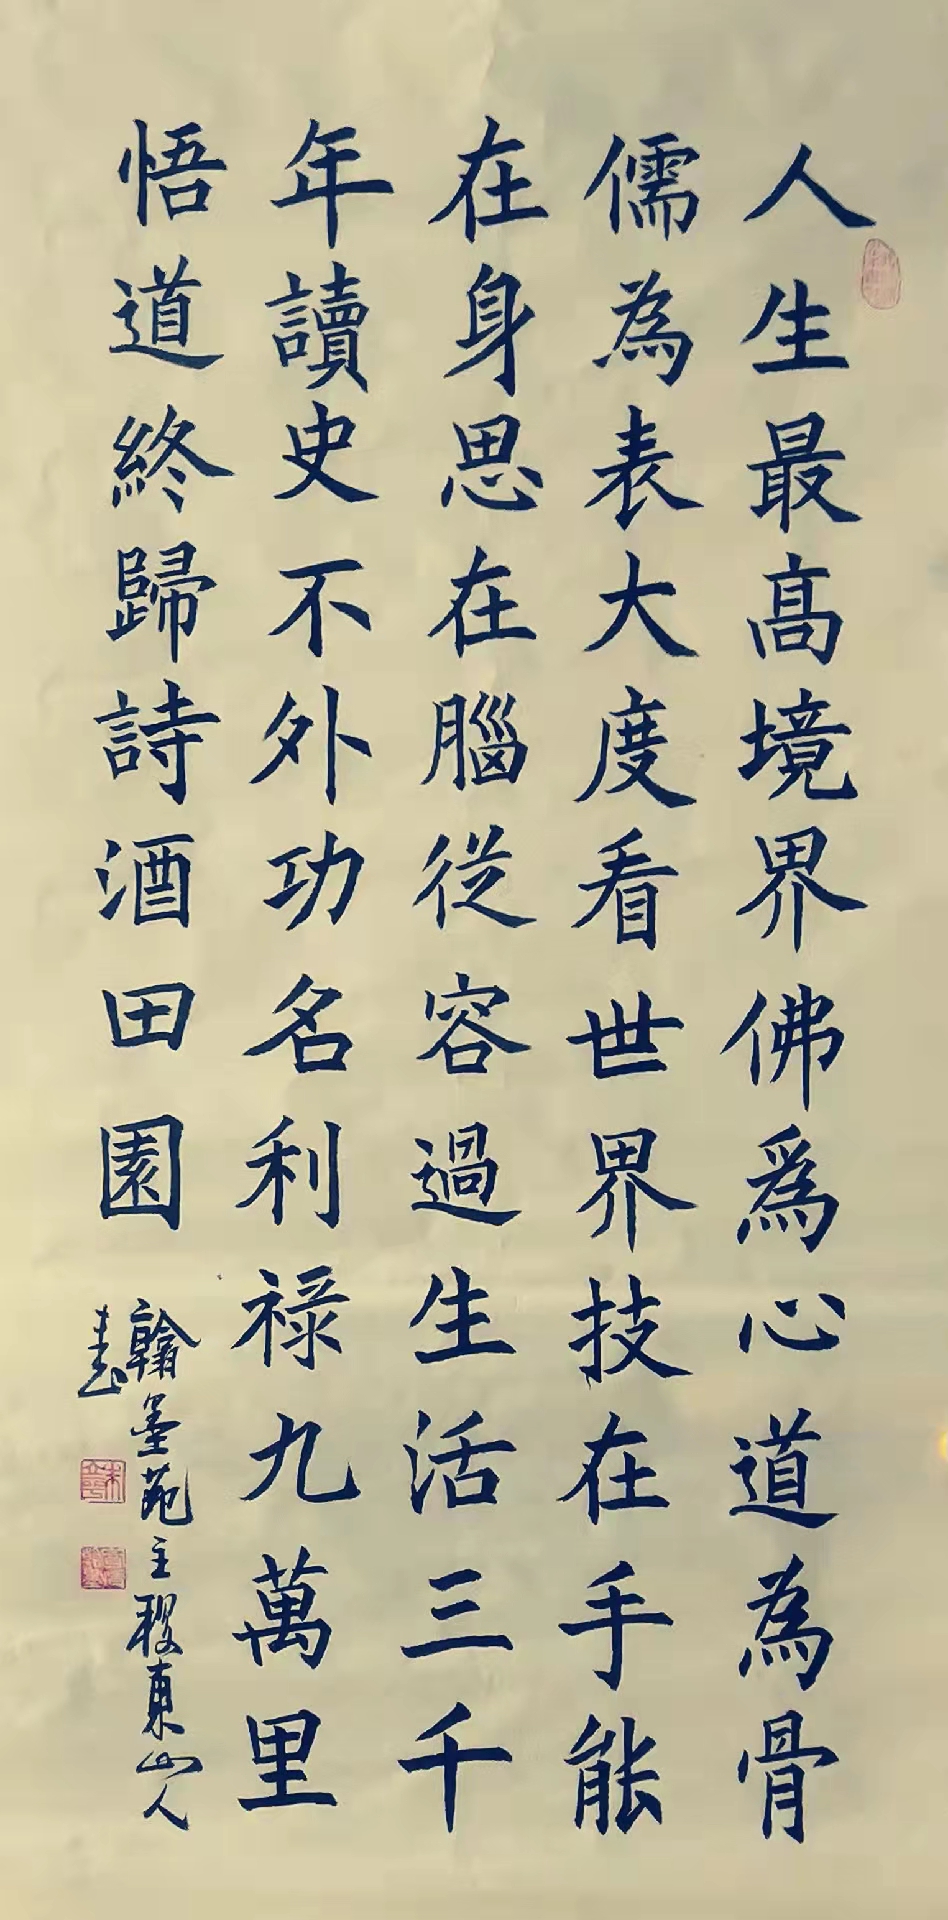 人生最高境界佛爲心道為骨
儒為表大度看世界技在手能
在身思在腦從容過生活三千
年讀史不外功名利禄九萬里
悟道終歸詩酒田園
翰墨苑主稷東山人
書